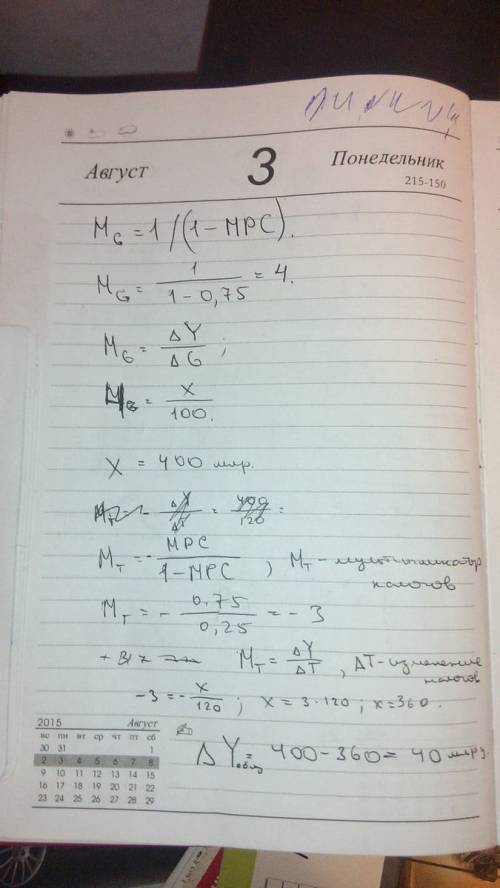 Август 3 Понедельник
215-150
M_G = 1/(1 − MPC).
M_G = 1 / (1 − 0,75) = 4.
M_G = ΔY / ΔG ;
M_G = X / 100.
X = 400 млр.
M_T = − MPC / (1 − MPC) , M_T − мультипликатор налогов
M_T = − 0,75 / 0,25 = − 3
M_T = ΔY / ΔT , ΔT − изменение налогов
−3 = − X / 120 ; X = 3 · 120 ; X = 360.
ΔY общ = 400 − 360 = 40 млрд.
2015 Август
вс пн вт ср чт пт сб
30 31 1
2 3 4 5 6 7 8
9 10 11 12 13 14 15
16 17 18 19 20 21 22
23 24 25 26 27 28 29